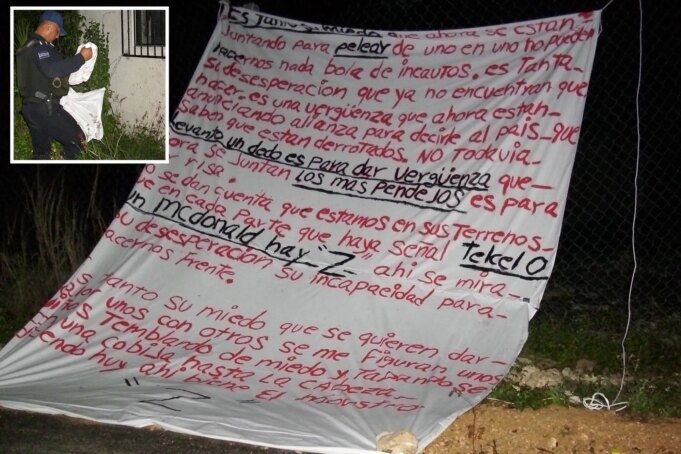 Es tanto su miedo que ahora se estan
Juntando para pelear de uno en uno no pueden
hacernos nada bola de incautos. es tanta
su desesperacion que ya no encuentran que
hacer. es una vergüenza que ahora estan
anunciando alianza para decirle al pais que
saben que estan derrotados. NO Todavia
Levanto un dedo es para dar vergüenza que
ora se juntan los mas pendejos es para
risa.
se dan cuenta que estamos en sus terrenos
en cada parte que haya señal Tekel o
un mcdonald hay "Z" ahi se mira
su desesperacion su incapacidad para
hacernos frente.
Tanto su miedo que se quieren dar
unos con otros se me figuran unos
Temblando de miedo y Tapandose
una cobija hasta La cabeza
diciendo huy ahi biene El monstro
"Z